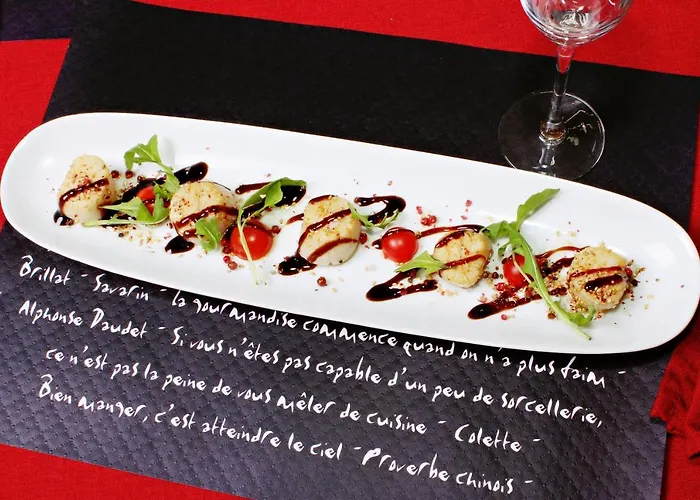 Brillat - Savarin - la gourmandise commence quand on n'a plus faim -
Alphonse Daudet - Si vous n'êtes pas capable d'un peu de sorcellerie,
ce n'est pas la peine de vous mêler de cuisine - Colette -
Bien manger, c'est atteindre le ciel - Proverbe chinois -